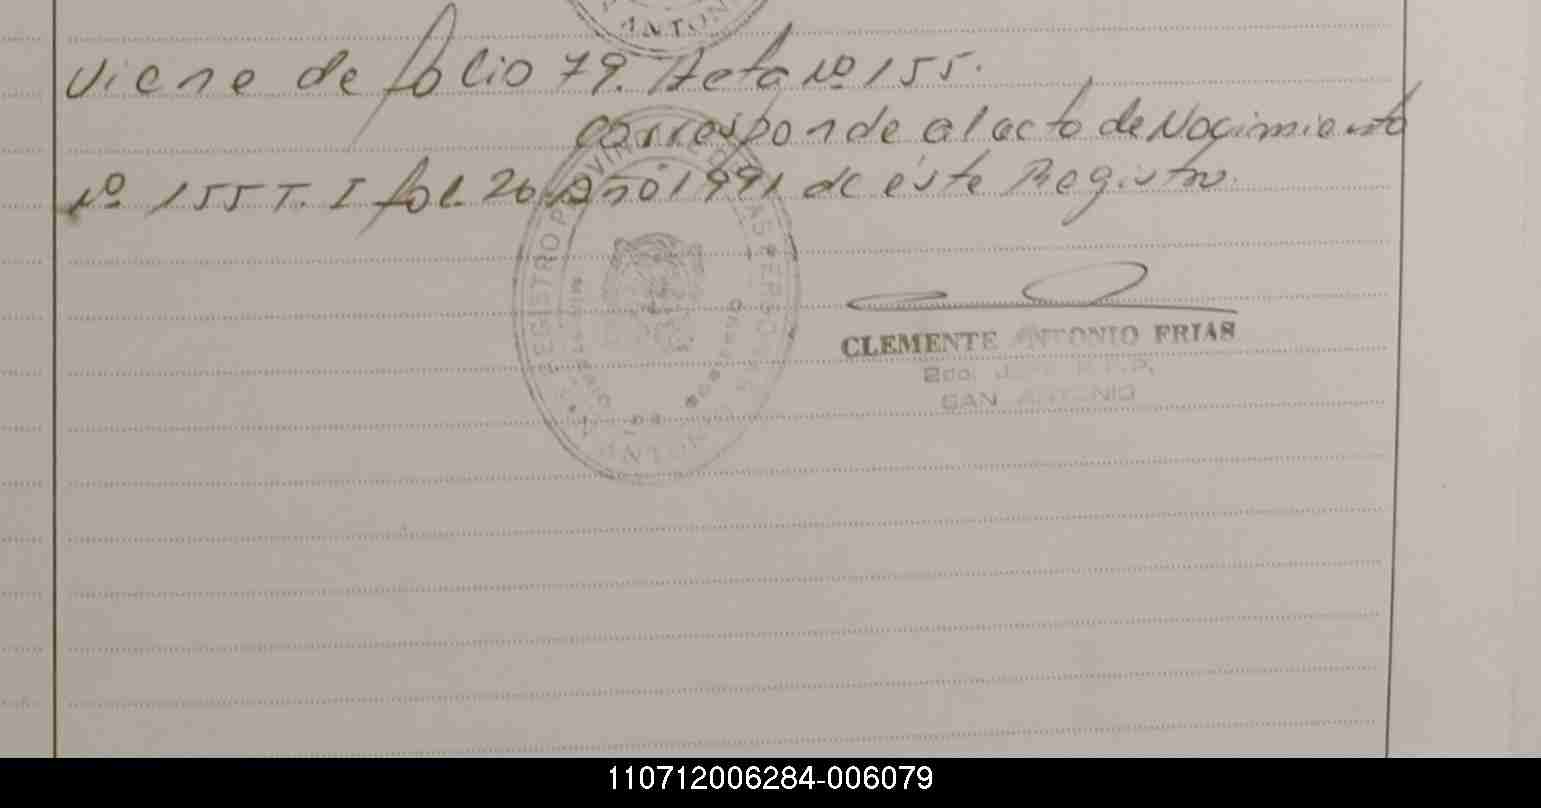 ANTON
Viene de folio 79. Acta Nº 155.
corresponde al acta de Nacimiento
Nº 155 T. I fol. 20 Año 1991 de éste Registro.
REGISTRO PROVINCIAL DE LAS PERSONAS
CLEMENTE ANTONIO FRIAS
2do. JEFE R.P.P.
SAN ANTONIO
110712006284-006079